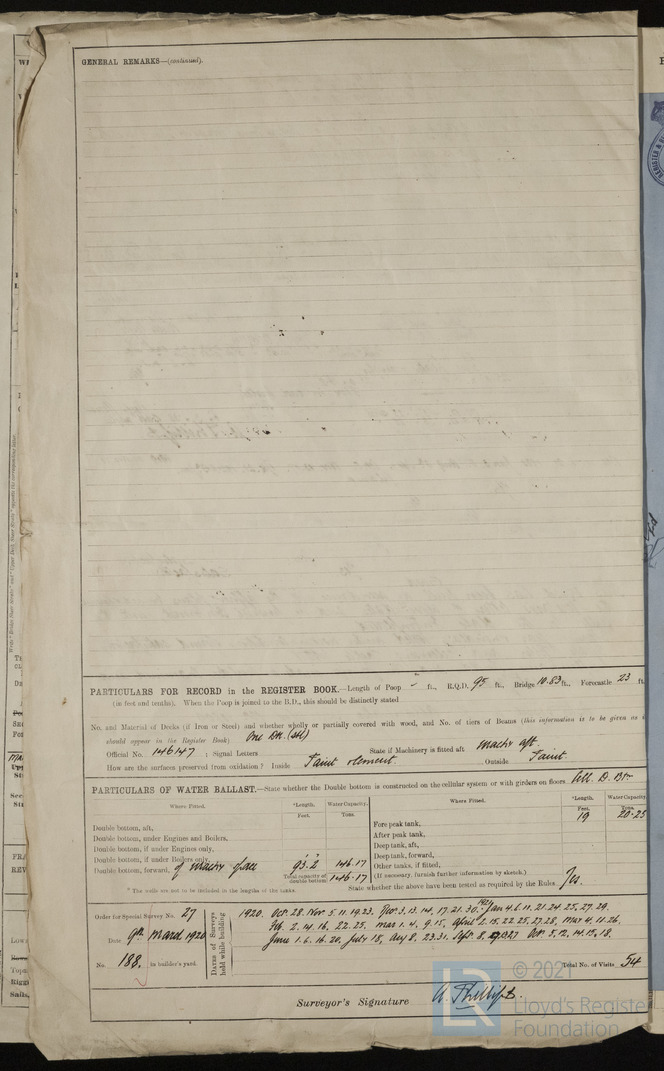 GENERAL REMARKS—(continued).
PARTICULARS FOR RECORD in the REGISTER BOOK.—Length of Poop - ft., R.Q.D. 95 ft., Bridge 10.83 ft., Forecastle 23 ft.
(in feet and tenths). When the Poop is joined to the B.D., this should be distinctly stated
No. and Material of Decks (if Iron or Steel) and whether wholly or partially covered with wood, and No. of tiers of Beams (this information is to be given as it
should appear in the Register Book) One Dk. (stl)
Official No. 146147 ; Signal Letters State if Machinery is fitted aft Machy aft.
How are the surfaces preserved from oxidation? Inside Paint & cement. Outside Paint.
PARTICULARS OF WATER BALLAST.—State whether the Double bottom is constructed on the cellular system or with girders on floors Cell. D. Btm
Where Fitted. *Length. Water Capacity. Where Fitted. *Length. Water Capacity.
Feet. Tons. Feet. Tons.
Double bottom, aft, Fore peak tank, 19 20.25
Double bottom, under Engines and Boilers, After peak tank,
Double bottom, if under Engines only, Deep tank, aft,
Double bottom, if under Boilers only, Deep tank, forward,
Double bottom, forward, of machy space 93.2 146.17 Other tanks, if fitted,
Total capacity of double bottom 146.17 (If necessary, furnish further information by sketch.)
* The wells are not to be included in the lengths of the tanks. State whether the above have been tested as required by the Rules Yes.
Order for Special Survey No. 27
Date 9th March 1920
No. 188. in builder's yard.
Dates of Surveys held while building
1920. Oct. 28. Nov. 5. 11. 19. 23. Dec. 3. 13. 14. 17. 21. 30. 1921 Jan 4. 6. 11. 21. 24. 25. 27. 29.
Feb. 2. 14. 16. 22. 25. Mar 1. 4. 9. 15. April 2. 15. 22. 25. 27. 28. May 4. 11. 26.
June 1. 6. 16. 20. July 18. Aug 8. 23. 31. Sept. 8. Oct 5. 12. 14. 15. 18.
Total No. of Visits 54
Surveyor's Signature A. Phillips.
© 2021
Lloyd's Register
Foundation
LR